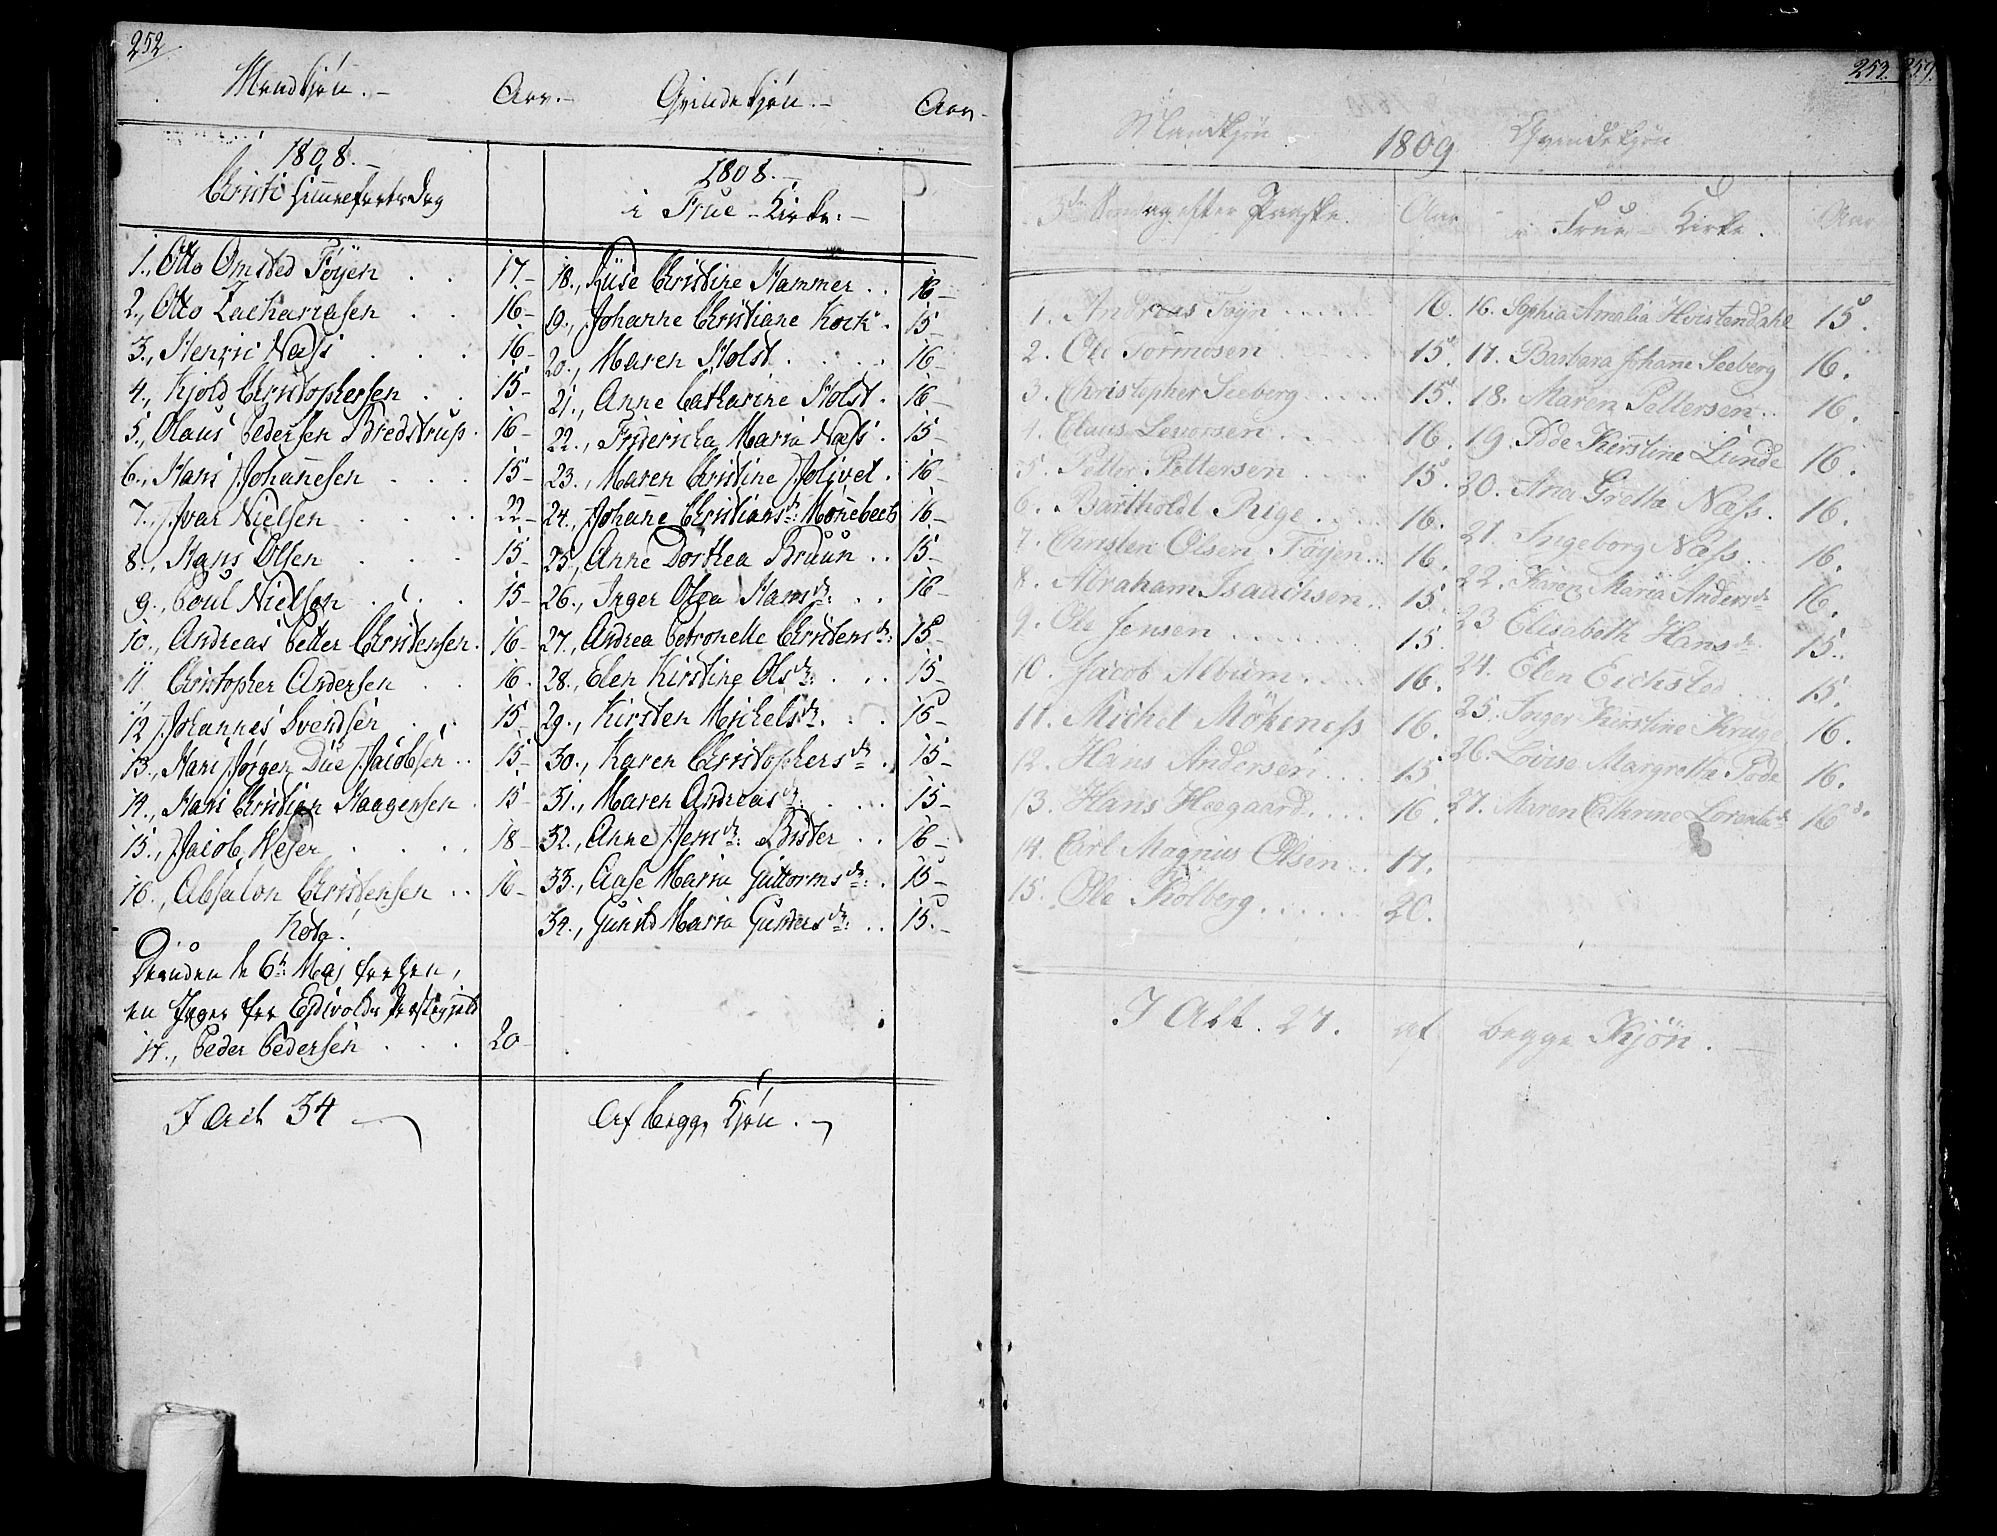 252
Mandkjøn.- Aar.-
1808.-
Christi Himmelfartsdag
1., Otto Omsted Föyen . . 17.-
2., Otto Zachariasen . . 16-
3., Henric Næss . . . 16-
4., Kjöld Christophersen . . 15-
5., Olaus Pedersen Bredstrup. 16-
6., Hans Johannesen . . . 15-
7., Ivar Nielsen . . . . 22-
8., Hans Olsen . . . 15-
9., Poul Nielsen . . . 15-
10., Andreas Petter Christensen. 16-
11., Christopher Andersen . . 16.
12., Johannes Svendsen . . 15-
13., Hans Jørgen Due Jacobsen . . 15-
14., Hans Christian Haagensen . 15-
15., Jacob Weser . . . . 18-
16., Absalon Christensen . . 16-
Nota.
Desuden d. 6te Maj
en Jæger fra Eidsvolds Præstegjæld
17., Peder Pedersen . . . 20-
I Alt 34
Qvindekjøn.- Aar-
1808.-
i Frue-Kirke.-
18., Lüse Christine Hammer . . 16-
19., Johanne Christiane Kock. 15-
20., Maren Holst . . . . 16-
21., Anne Catharine Holst. 16-
22., Friderícha Maria Næss. 15-
23., Maren Christine Jolivet. 16-
24., Johañe Christiansdr: Mönebech 16-
25., Anne Dorthea Bruun . . 15-
26., Inger Olea Hansdr: . . 16-
27., Andrea Petronelle Christensdr: 15-
28., Elen Kirstine Olsdr: . . . 15-
29., Kirsten Michelsdr. . . 15-
30., Karen Christophersdr . 15-
31., Maren Andreasdr. . . . 15-
32., Anne Jensdr: Buster . . 16-
33., Aase Maria Guttormsdr: . 15-
34., Gunild Maria Gundersdr: . . 15.-
Af begge Kjøn.
253. 259.
Mandkjøn 1809 Qvindekjøn
3de Søndag efter Paaske. Aar
1. Andreas Föyn . . . . . 16.
2. Ole Tormosen . . . . 15.
3. Christopher Seeberg . . . . 15.
4. Claus Levorsen . . . 16.
5. Petter Pettersen . . . 15.
6. Bartholdt Rige . . . 16.
7. Carsten Olsen Föyen . . 16.
8. Abraham Isaachsen . . 15.
9. Ole Jensen . . . . . 15.
10. Jacob Album . . . . 16.
11. Michel Mökeness 16.
12. Hans Andersen . . . 15
13. Hans Heegaard . . . . 16.
14. Carl Magnus Olsen . . 17.
15. Ole Kolberg . . . . . 20.
i Frue-Kirke. Aar
16. Sophia Amalia Hvistendahl 15.
17. Barbara Johane Seeberg 16.
18. Maren Pettersen . . 16.
19. Bode Kirstine Lunde 16.
20. Ana Gretha Næss. 16.
21. Ingeborg Næss . . 16.
22. Karen Maria Andersdr 16.
23 Elisabeth Hansdr 15.
24. Elen Eichsted . . . 15.
25. Inger Kirstine Kruge 16.
26. Lovise Margrethe Bode 16.
27. Maren Cathrine Lorentsdr 16.
I Alt. 27. af begge Kjön.